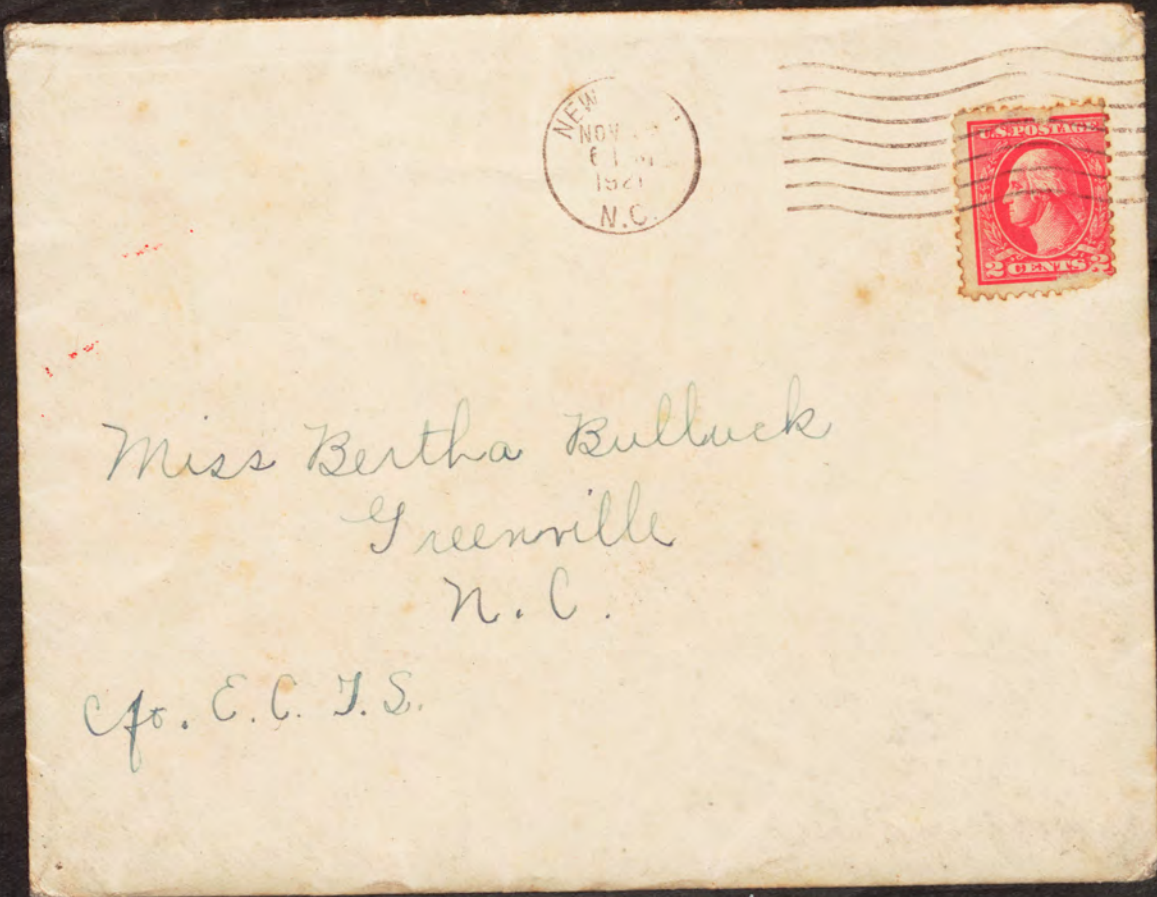 NEW
NOV
1921
N.C.
U.S. POSTAGE
2 CENTS 2
Miss Bertha Bulluck
Greenville
N. C.
c/o. E. C. T. S.